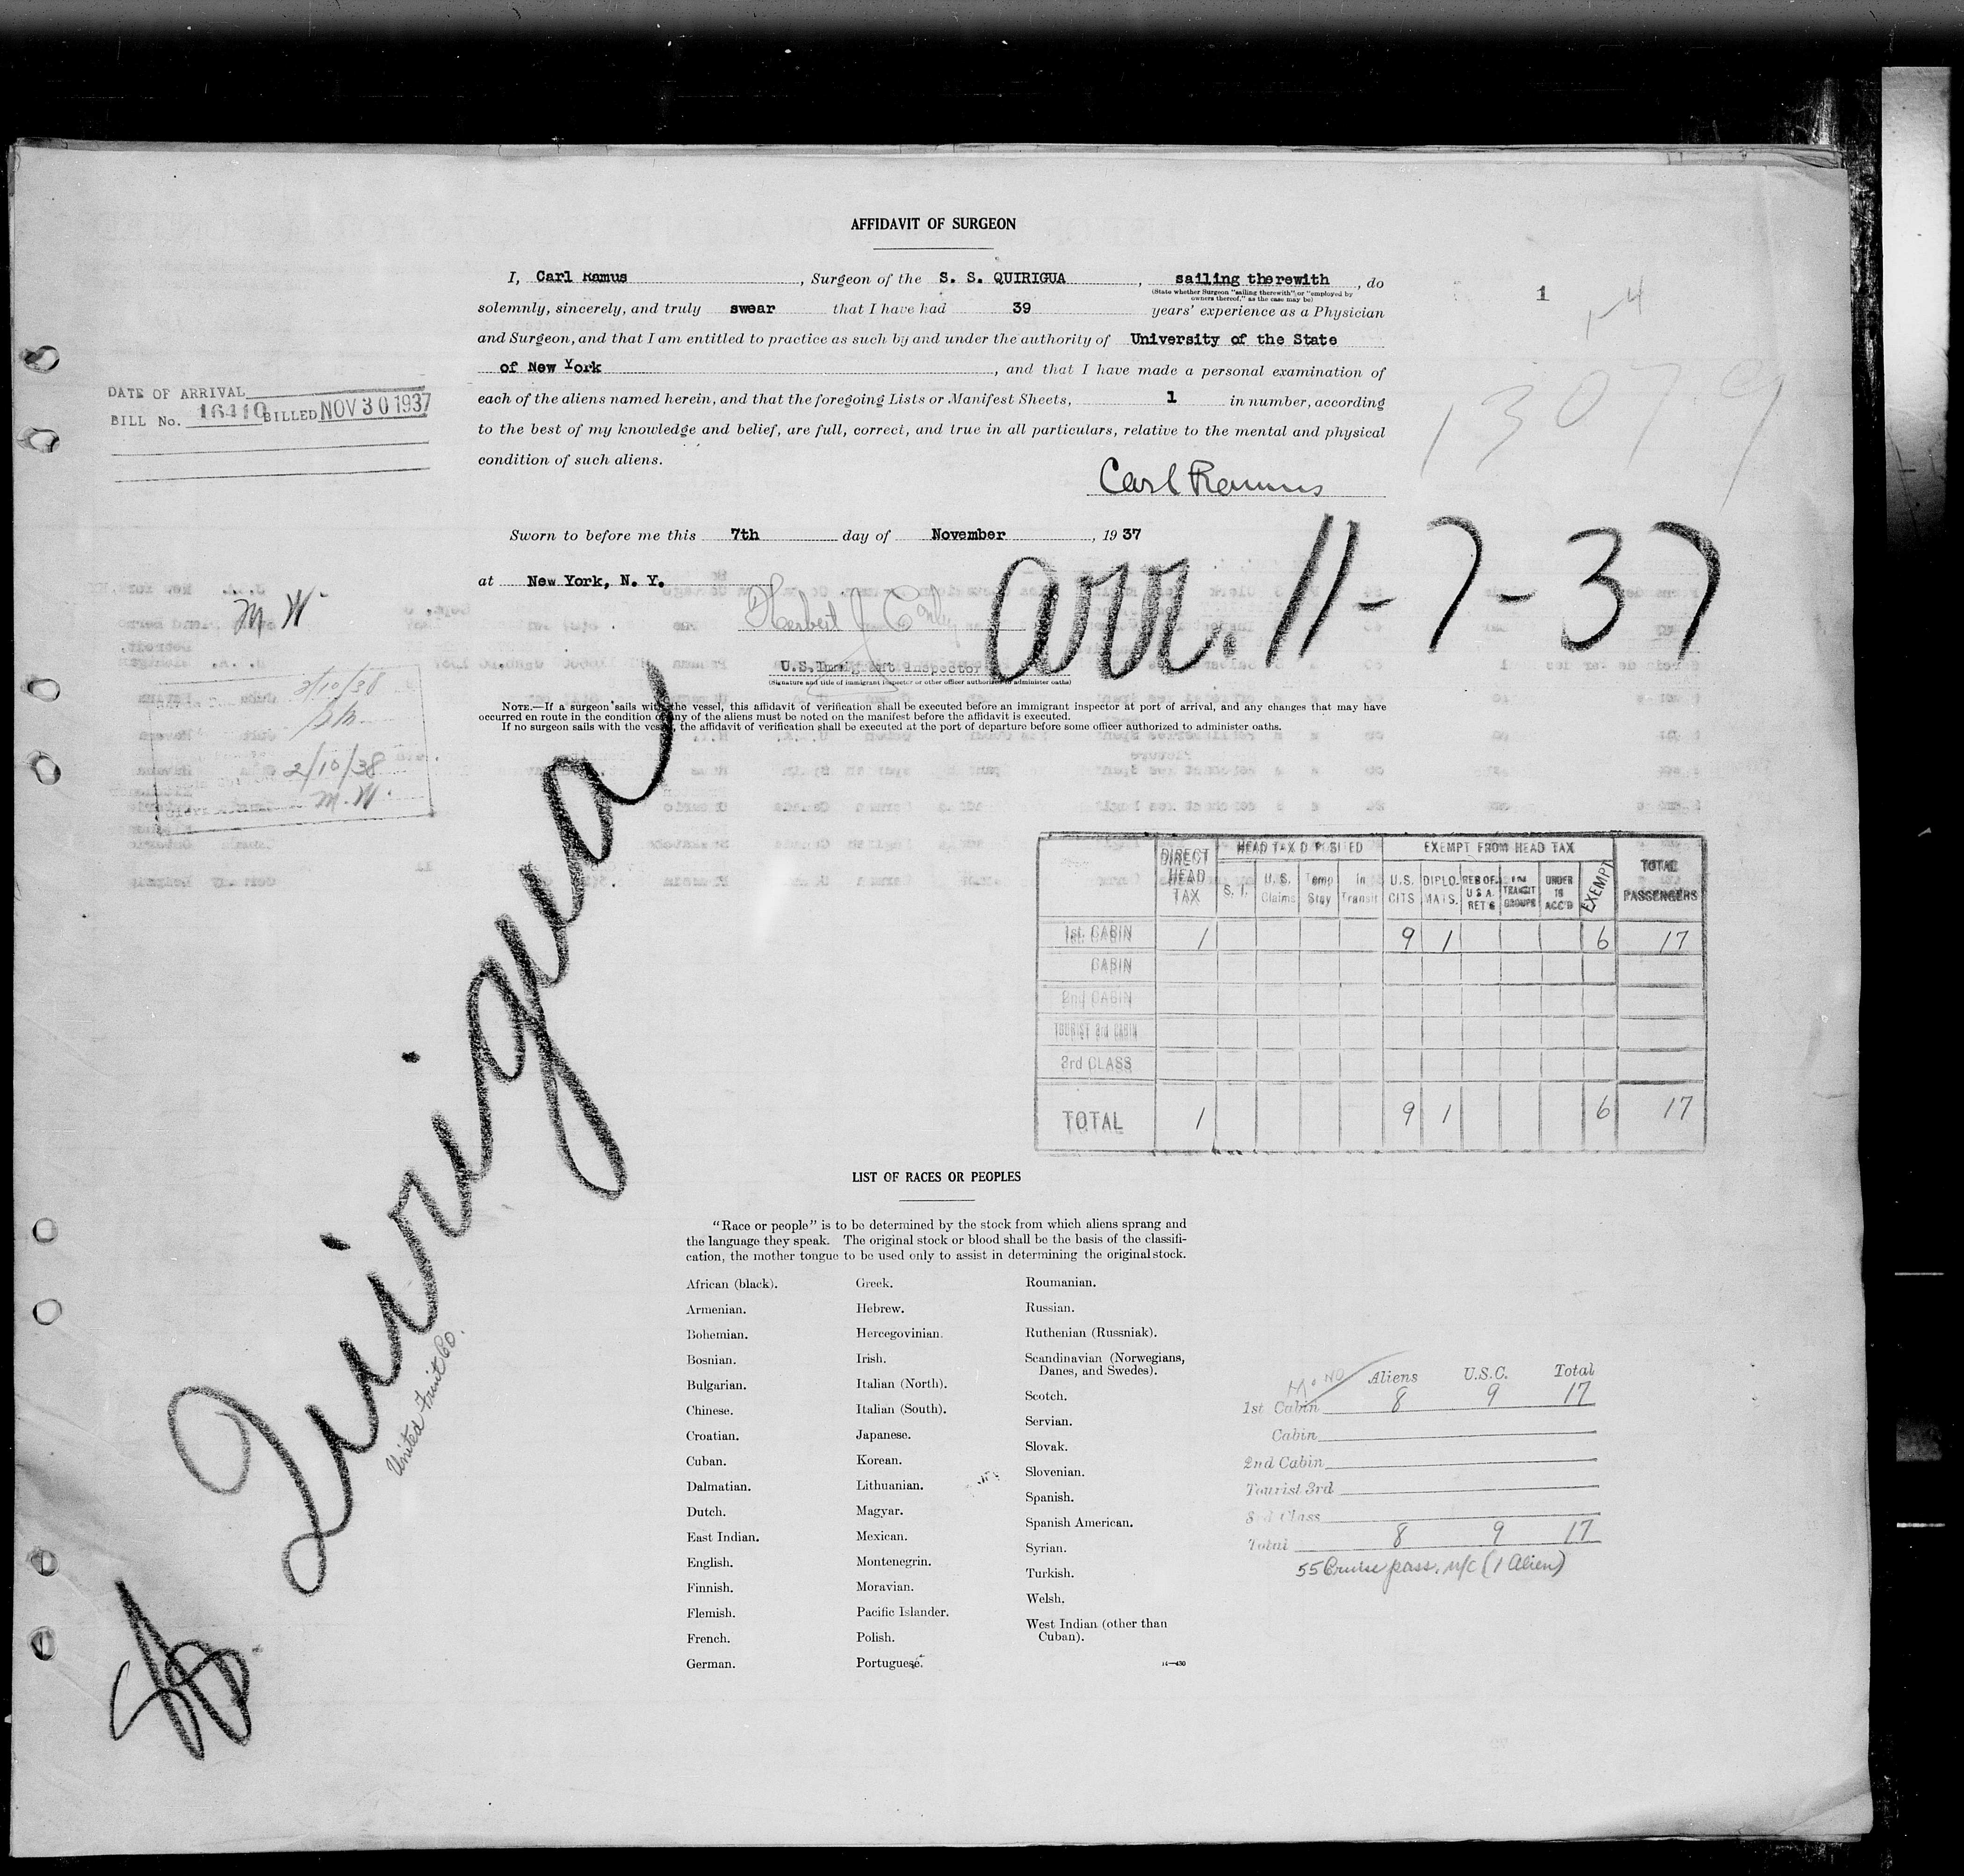 AFFIDAVIT OF SURGEON
I, Carl Ramus, Surgeon of the S. S. QUIRIGUA, sailing therewith, do
(State whether Surgeon "sailing therewith" or "employed by
owners thereof," as the case may be)
solemnly, sincerely, and truly swear that I have had 39 years' experience as a Physician
and Surgeon, and that I am entitled to practice as such by and under the authority of University of the State
of New York, and that I have made a personal examination of
each of the aliens named herein, and that the foregoing Lists or Manifest Sheets, 1 in number, according
to the best of my knowledge and belief, are full, correct, and true in all particulars, relative to the mental and physical
condition of such aliens.
Carl Ramus
1
1-4
13079
DATE OF ARRIVAL
BILL No. 16410 BILLED NOV 30 1937
Sworn to before me this 7th day of November, 1937
at New York, N. Y.
arr. 11-7-37
M W
Herbert J
U.S. Immigrant Inspector
(Signature and title of immigrant inspector or other officer authorized to administer oaths)
NOTE.—If a surgeon sails with the vessel, this affidavit of verification shall be executed before an immigrant inspector at port of arrival, and any changes that may have
occurred en route in the condition of any of the aliens must be noted on the manifest before the affidavit is executed.
If no surgeon sails with the vessel, the affidavit of verification shall be executed at the port of departure before some officer authorized to administer oaths.
2/10/38
2/10/38
M. W.
Quirigua
United Fruit Co.
DIRECT HEAD TAX
HEAD TAX DEPOSITED
EXEMPT FROM HEAD TAX
TOTAL PASSENGERS
S. I. U. S. Claims Temp Stay In Transit U.S. CITS DIPLO. MATS. RES OF U S A RET'G IN TRANSIT GROUPS UNDER 16 ACC'D EXEMPT
1st CABIN 1 9 1 6 17
CABIN
2nd CABIN
TOURIST 3rd CABIN
3rd CLASS
TOTAL 1 9 1 6 17
LIST OF RACES OR PEOPLES
"Race or people" is to be determined by the stock from which aliens sprang and
the language they speak. The original stock or blood shall be the basis of the classifi-
cation, the mother tongue to be used only to assist in determining the original stock.
African (black).
Armenian.
Bohemian.
Bosnian.
Bulgarian.
Chinese.
Croatian.
Cuban.
Dalmatian.
Dutch.
East Indian.
English.
Finnish.
Flemish.
French.
German.
Greek.
Hebrew.
Hercegovinian.
Irish.
Italian (North).
Italian (South).
Japanese.
Korean.
Lithuanian.
Magyar.
Mexican.
Montenegrin.
Moravian.
Pacific Islander.
Polish.
Portuguese.
Roumanian.
Russian.
Ruthenian (Russniak).
Scandinavian (Norwegians,
Danes, and Swedes).
Scotch.
Servian.
Slovak.
Slovenian.
Spanish.
Spanish American.
Syrian.
Turkish.
Welsh.
West Indian (other than
Cuban).
14—430
Aliens U.S.C. Total
1st Cabin 8 9 17
Cabin
2nd Cabin
Tourist 3rd
3rd Class
Total 8 9 17
55 Cruise pass. n/c (1 Alien)